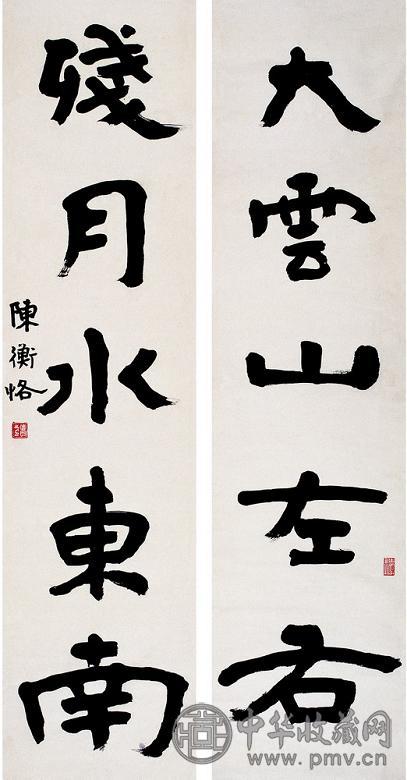 大雲山左右
殘月水東南
陳衡恪
中华收藏网
www.pmv.cn